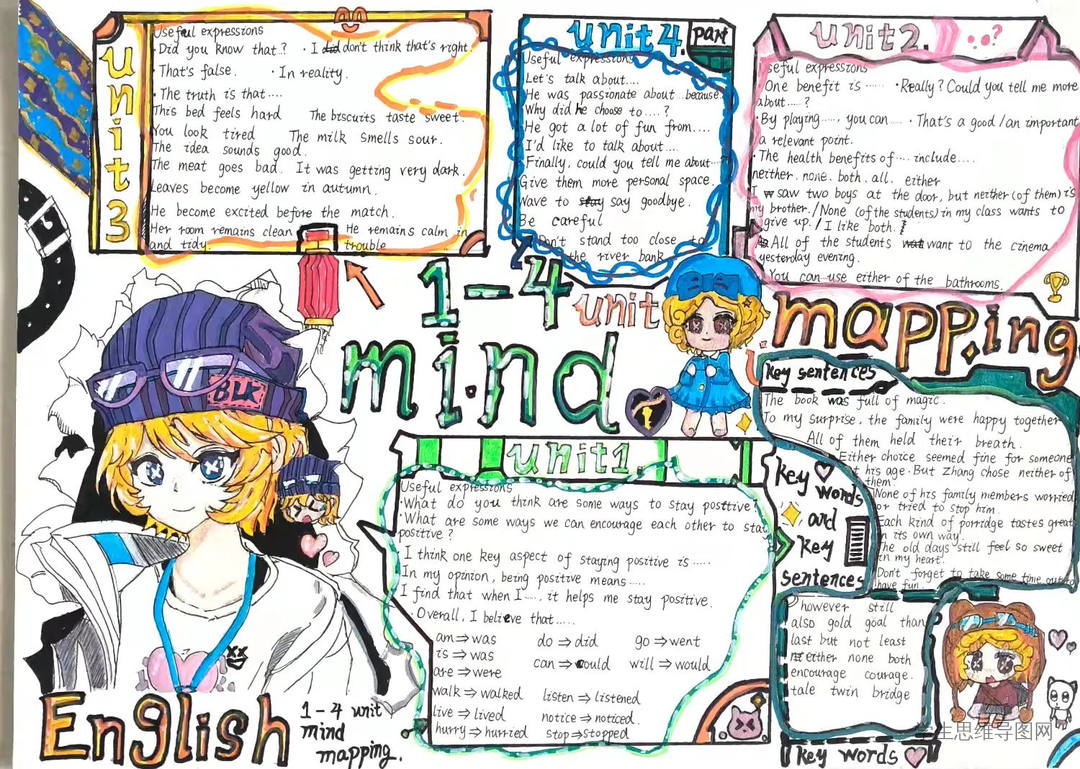 unit3
Useful expressions
·Did you know that..? ·I did don't think that's right.
·That's false. ·In reality.
·The truth is that....
This bed feels hard The biscuits taste sweet.
You look tired The milk smells sour.
The idea sounds good.
The meat goes bad. It was getting very dark.
Leaves become yellow in autumn.
He become excited before the match.
Her room remains clean and tidy.
He remains calm in trouble
unit4. part
Useful expressions
Let's talk about....
He was passionate about...because.
Why did he choose to....?
He got a lot of fun from....
I'd like to talk about....
Finally, could you tell me about....
Give them more personal space.
Wave to say goodbye.
Be careful
Don't stand too close to
the river bank
unit2.
seful expressions
One benefit is ...... ·Really? Could you tell me more
about.....?
·By playing....., you can..... ·That's a good /an important
a relevant point.
·The health benefits of.... include....
neither. none. both. all. either
I saw two boys at the door, but neither (of them) is
my brother./None (of the students) in my class wants to
give up./I like both.
All of the students want to the cinema
yesterday evening.
You can use either of the bathrooms.
1-4 unit
mind mapping
BLK
unit1.
Useful expressions
·What do you think are some ways to stay positive?
·What are some ways we can encourage each other to stay
positive?
I think one key aspect of staying positive is .....
In my opinion, being positive means.....
I find that when I...., it helps me stay positive.
Overall, I believe that.....
am⇒was do⇒did go⇒went
is⇒was can⇒could will⇒would
are⇒were
walk⇒walked listen⇒listened
live⇒lived notice⇒noticed.
hurry⇒hurried stop⇒stopped
Key sentences
The book was full of magic.
To my surprise, the family were happy together
All of them held their breath.
Either choice seemed fine for someone
t his age. But Zhang chose neither of
them.
None of his family members worried
or tried to stop him.
Each kind of porridge tastes great
in its own way.
The old days still feel so sweet
in my heart.
Don't forget to take some time out to
have fun
key words
and
key
sentences
however still
also gold goal than
last but not least
neither none both
encourage courage.
tale twin bridge
key words
English
1-4 unit
mind
mapping.
生思维导图网